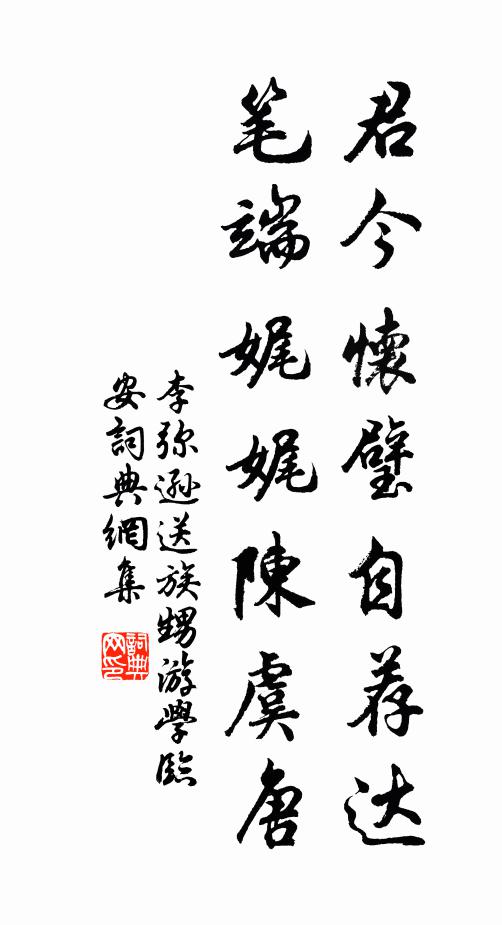 君今懷璧自荐达
笔端娓娓陳虞唐
李弥遜送族甥游學臨
安詞典網集
詞典网印